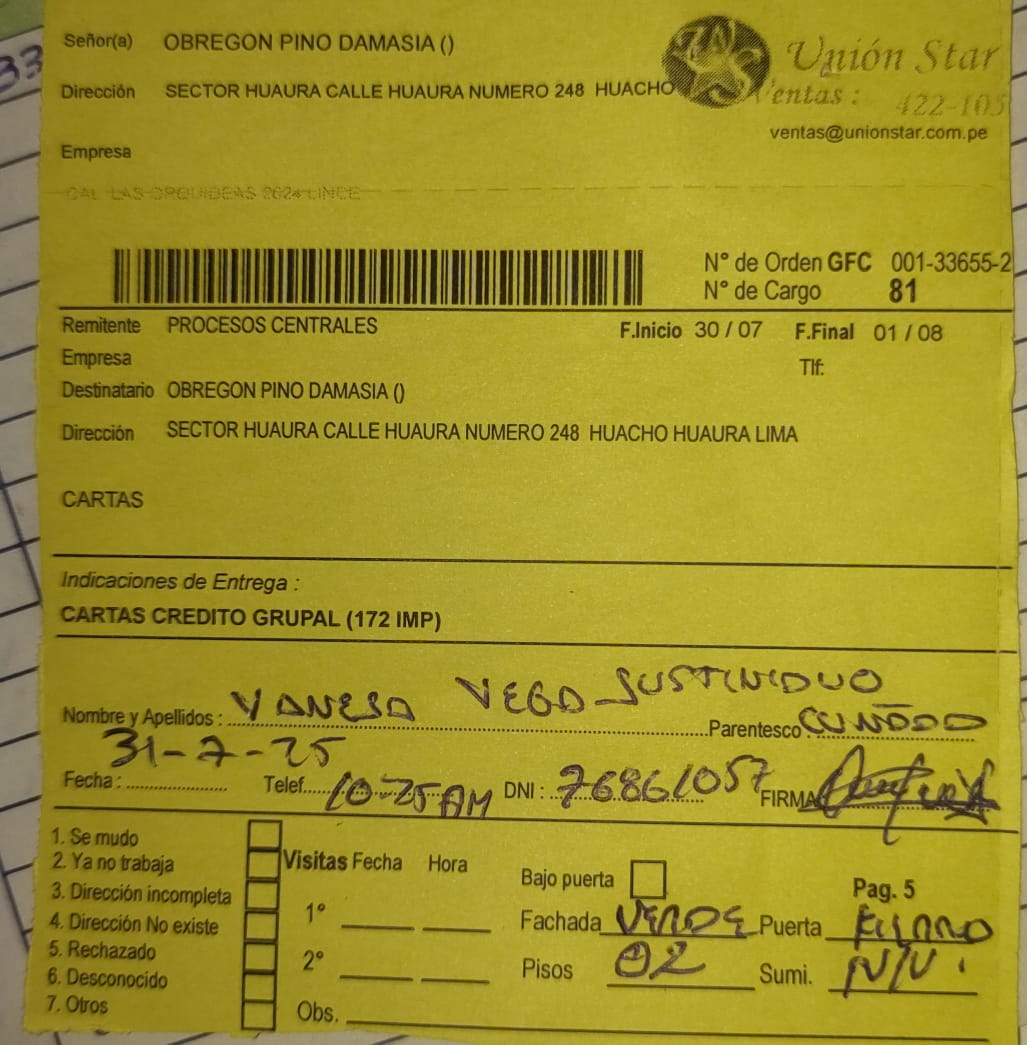 33
Señor(a) OBREGON PINO DAMASIA ()
Unión Star
Dirección SECTOR HUAURA CALLE HUAURA NUMERO 248 HUACHO
Ventas : 422-105
ventas@unionstar.com.pe
Empresa
CAL LAS ORQUIDEAS 2624 LINCE
N° de Orden GFC 001-33655-2
N° de Cargo 81
Remitente PROCESOS CENTRALES F.Inicio 30 / 07 F.Final 01 / 08
Empresa Tlf:
Destinatario OBREGON PINO DAMASIA ()
Dirección SECTOR HUAURA CALLE HUAURA NUMERO 248 HUACHO HUAURA LIMA
CARTAS
Indicaciones de Entrega :
CARTAS CREDITO GRUPAL (172 IMP)
Nombre y Apellidos : VANESA VEGA SUSTINIDUO Parentesco CUÑADA
Fecha : 31-7-25 Telef. 10-25 AM DNI : 76861057 FIRMA
1. Se mudo
2. Ya no trabaja Visitas Fecha Hora Bajo puerta Pag. 5
3. Dirección incompleta
4. Dirección No existe 1° Fachada VERDE Puerta FIERRO
5. Rechazado
6. Desconocido 2° Pisos 02 Sumi. N/N.
7. Otros Obs.